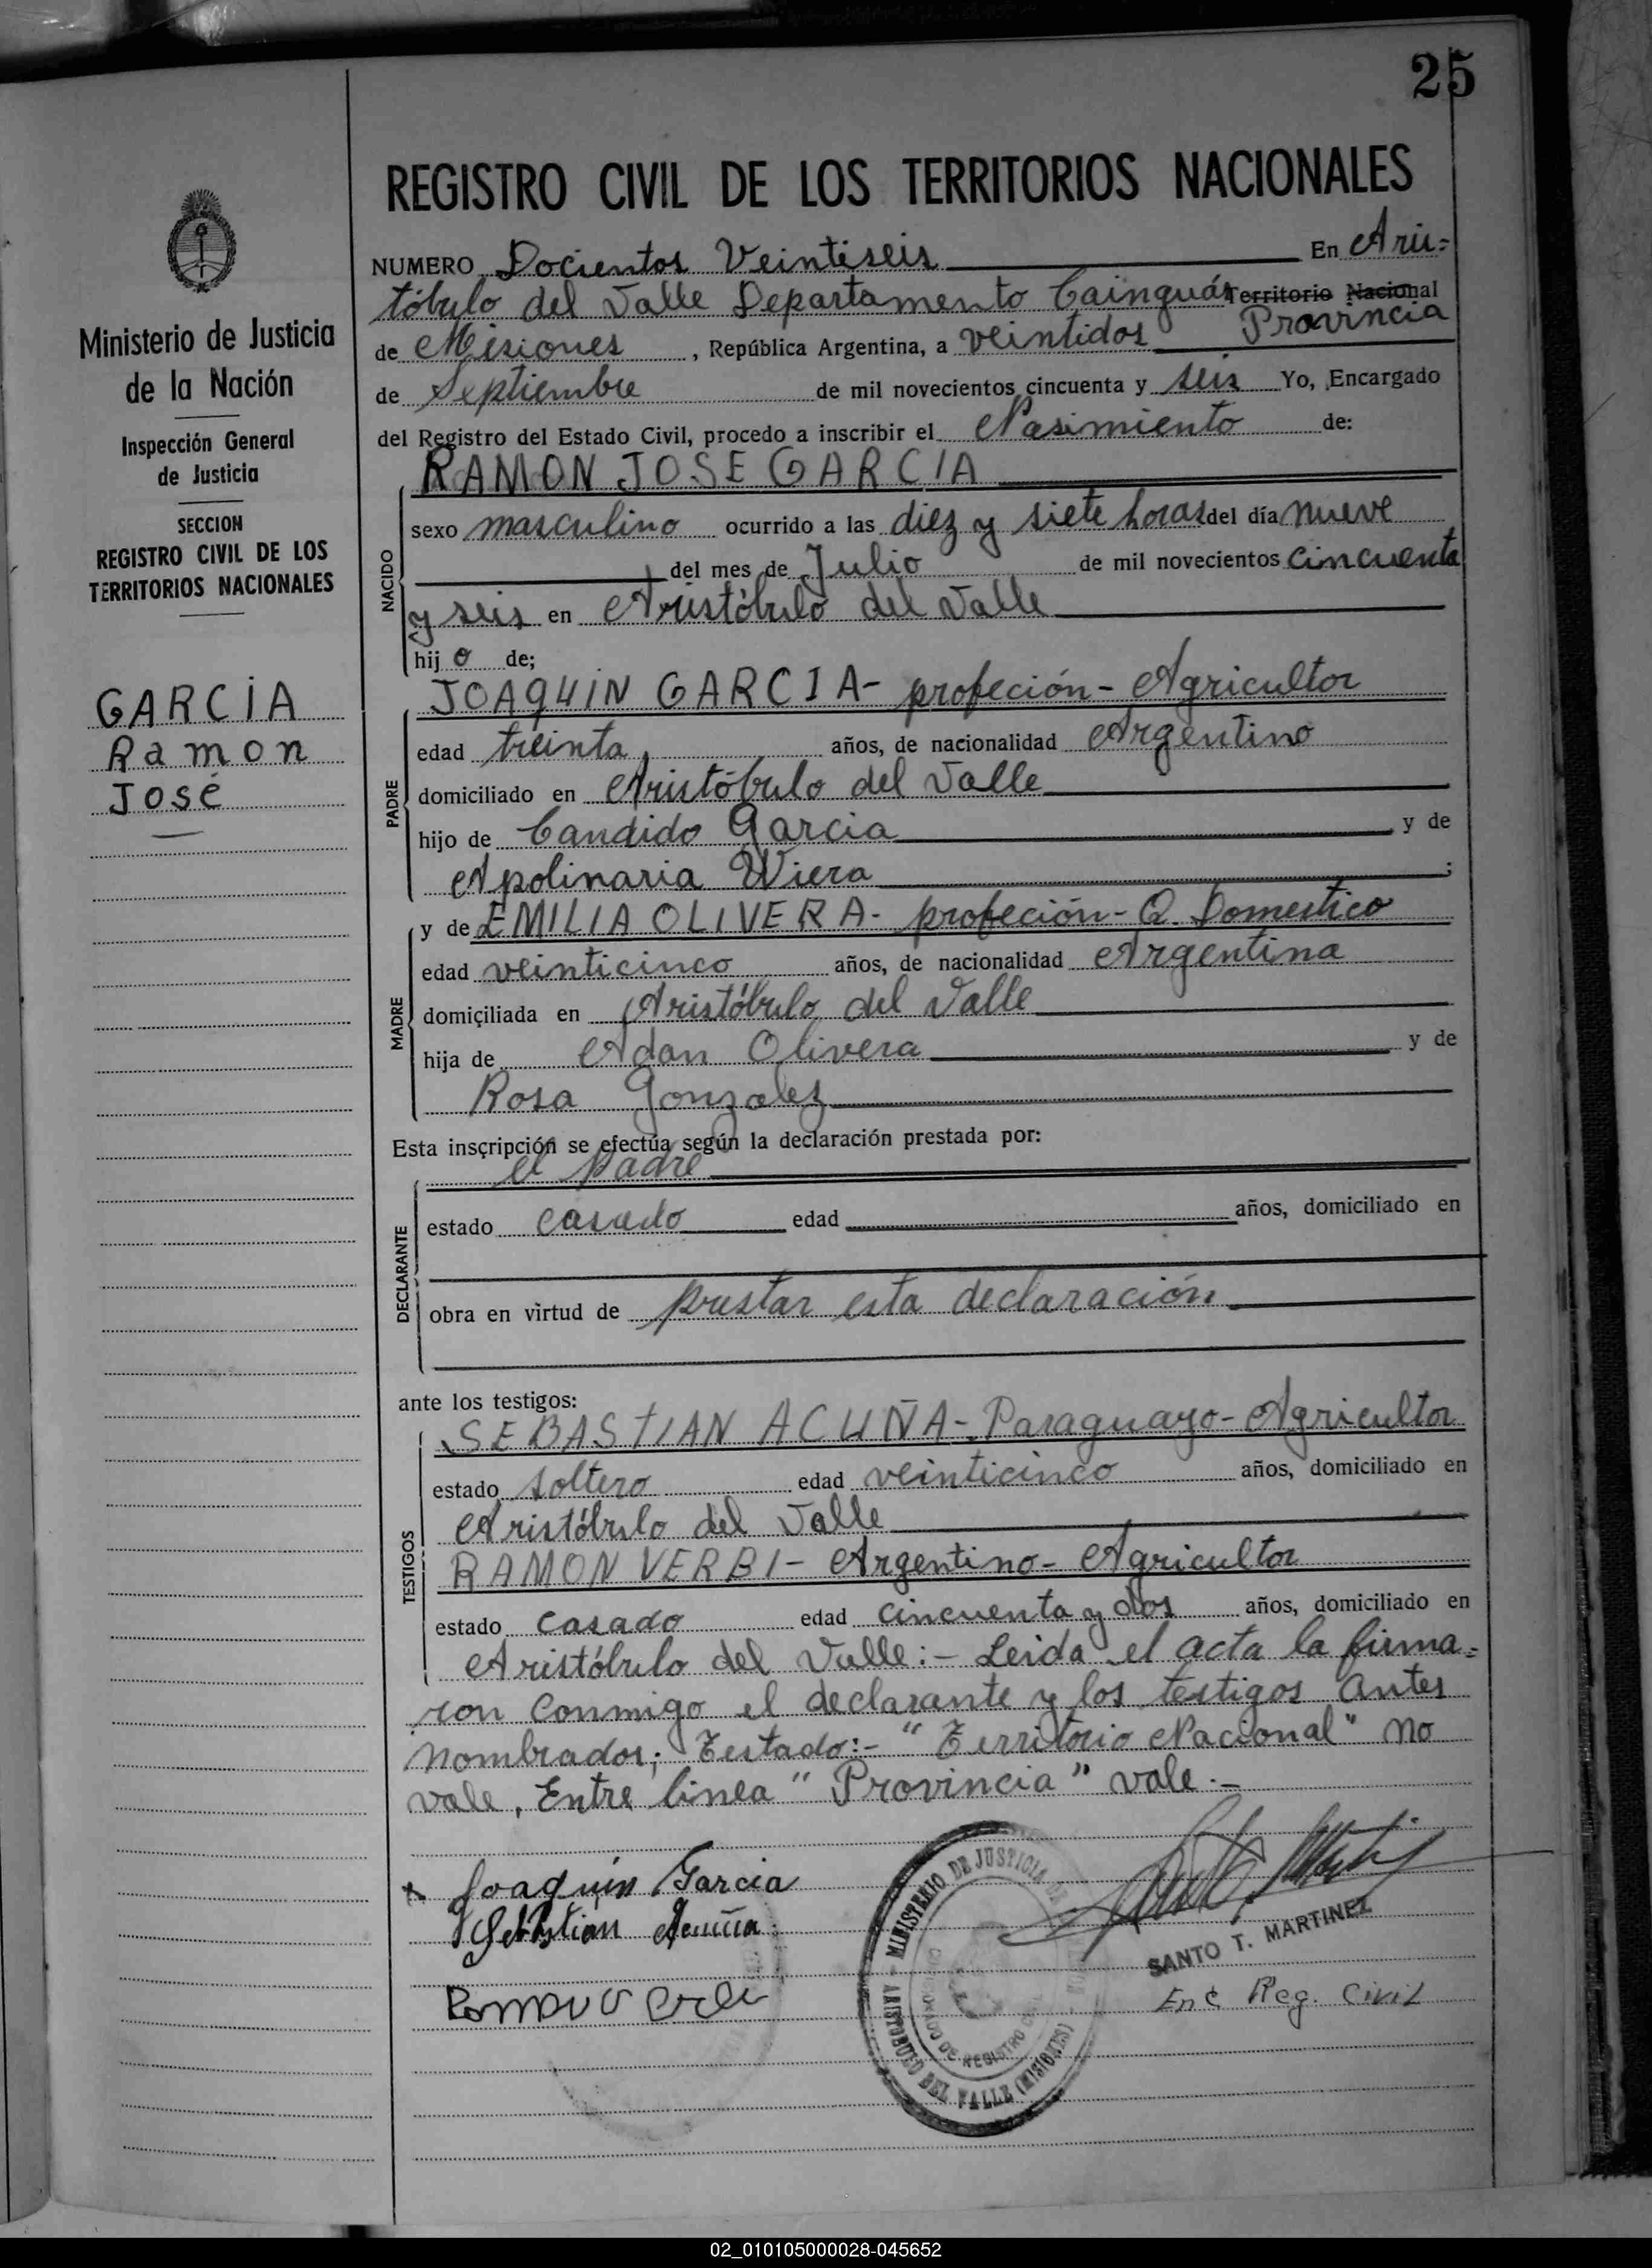 25
REGISTRO CIVIL DE LOS TERRITORIOS NACIONALES
Ministerio de Justicia
de la Nación
Inspección General
de Justicia
SECCION
REGISTRO CIVIL DE LOS
TERRITORIOS NACIONALES
GARCIA
Ramon
José
NUMERO Docientos Veintiseis En Aris=
tóbulo del Valle Departamento Cainguás Territorio Nacional
Provincia
de Misiones , República Argentina, a veintidos
de Septiembre de mil novecientos cincuenta y seis Yo, Encargado
del Registro del Estado Civil, procedo a inscribir el Nasimiento de:
RAMON JOSE GARCIA
NACIDO
sexo masculino ocurrido a las diez y siete horas del día nueve
del mes de Julio de mil novecientos cincuenta
y seis en Aristóbulo del Valle
hijo de;
PADRE
JOAQUIN GARCIA- profeción- Agricultor
edad treinta años, de nacionalidad Argentino
domiciliado en Aristóbulo del Valle
hijo de Candido Garcia y de
Apolinaria Wiera ;
MADRE
y de EMILIA OLIVERA- profeción- Q. Domestico
edad veinticinco años, de nacionalidad Argentina
domiciliada en Aristóbulo del Valle
hija de Adan Olivera y de
Rosa Gonzalez
Esta inscripción se efectúa según la declaración prestada por:
el padre
DECLARANTE
estado casado edad años, domiciliado en
obra en virtud de prestar esta declaración
ante los testigos:
TESTIGOS
SEBASTIAN ACUÑA- Paraguayo- Agricultor
estado soltero edad veinticinco años, domiciliado en
Aristóbulo del Valle
RAMON VERBI- Argentino- Agricultor
estado casado edad cincuenta y dos años, domiciliado en
Aristóbulo del Valle:- Leida el acta la firma=
ron conmigo el declarante y los testigos antes
nombrados; Testado:- "Territorio Nacional" no
vale, Entre linea "Provincia" vale.-
Joaquin Garcia
Sebastian Acuña
MINISTERIO DE JUSTICIA DE
ARISTOBULO DEL VALLE (MISIONES)
DE REGISTRO
SANTO T. MARTINEZ
Enc Reg. Civil
02_010105000028-045652